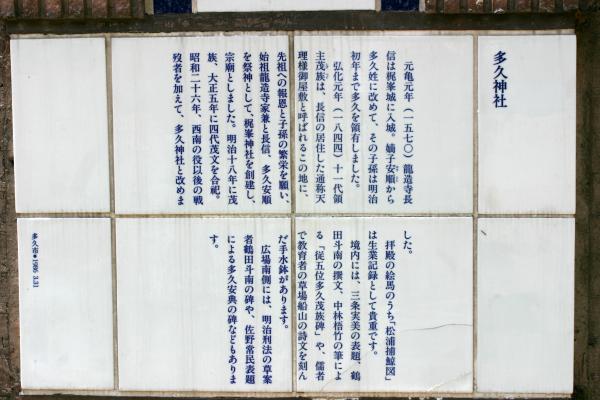 多久神社
元亀元年（一五七〇）龍造寺長
信は梶峯城に入城。嫡子安順から
多久姓に改めて、その子孫は明治
初年まで多久を領有しました。
弘化元年（一八四四）十一代領
主茂族は、長信の居住した通称天
理様御屋敷と呼ばれるこの地に、
先祖への報恩と子孫の繁栄を願い、
始祖龍造寺家兼と長信、多久安順
を祭神として、梶峯神社を創建し、
宗廟としました。明治十八年に茂
族、大正五年に四代茂文を合祀。
昭和二十六年、西南の役以後の戦
歿者を加えて、多久神社と改めま
した。
拝殿の絵馬のうち「松浦捕鯨図」
は生業記録として貴重です。
境内には、三条実美の表題、鶴
田斗南の撰文、中林梧竹の筆によ
る「従五位多久茂族碑」や、儒者
で教育者の草場船山の詩文を刻ん
だ手水鉢があります。
広場南側には、明治刑法の草案
者鶴田斗南の碑や、佐野常民表題
による多久安典の碑などもありま
す。
多久市●1986 3.31